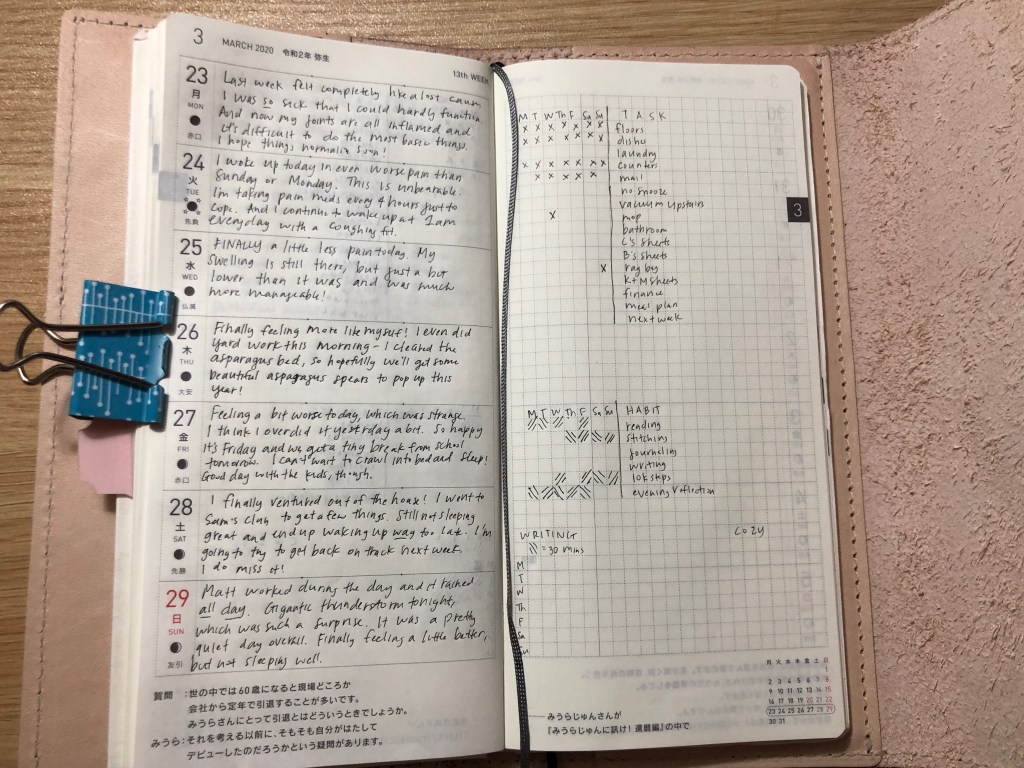 3 MARCH 2020 令和2年 弥生
13th WEEK
23 月 MON 赤口
Last week felt completely like a lost cause.
I was so sick that I could hardly function.
And now my joints are all inflamed and
it's difficult to do the most basic things.
I hope things normalize soon!
24 火 TUE 先負
I woke up today in even worse pain than
Sunday or Monday. This is unbearable.
I'm taking pain meds every 4 hours just to
cope. And I continue to wake up at 2am
everyday with a coughing fit.
25 水 WED 仏滅
FINALLY a little less pain today. My
swelling is still there, but just a bit
lower than it was and was much
more manageable!
26 木 THU 大安
Finally feeling more like myself! I even did
yard work this morning - I cleared the
asparagus bed, so hopefully we'll get some
beautiful asparagus spears to pop up this
year!
27 金 FRI 赤口
Feeling a bit worse today, which was strange.
I think I overdid it yesterday a bit. So happy
it's Friday and we get a tiny break from school
tomorrow. I can't wait to crawl into bed and sleep!
Good day with the kids, though.
28 土 SAT 先勝
I finally ventured out of the house! I went to
Sam's Club to get a few things. Still not sleeping
great and end up waking up way too late. I'm
going to try to get back on track next week.
I do miss it!
29 日 SUN 友引
Matt worked during the day and it rained
all day. Gigantic thunderstorm tonight,
which was such a surprise. It was a pretty
quiet day overall. Finally feeling a little better,
but not sleeping well.
質問 :世の中では60歳になると現場どころか
会社から定年で引退することが多いです。
みうらさんにとって引退とはどういうときでしょうか。
みうら:それを考える以前に、そもそも自分がはたして
デビューしたのだろうかという疑問があります。
M T W Th F Sa Su TASK
x x x x x x x floors
x x x x x x x dishes
laundry
x x x x x x x counters
x x x x x mail
no snooze
vacuum upstairs
x mop
bathroom
L's sheets
B's sheets
x
K+M sheets
finance
meal plan
next week
3
M T W Th F Sa Su HABIT
reading
stitching
journaling
writing
10k steps
evening reflection
WRITING
COZY
= 30 mins
M
T
W
Th
F
Sa
Su
月 火 水 木 金 土 日
1
2 3 4 5 6 7 8
9 10 11 12 13 14 15
16 17 18 19 20 21 22
23 24 25 26 27 28 29
30 31
みうらじゅんさんが
『みうらじゅんに訊け! 還暦編』の中で